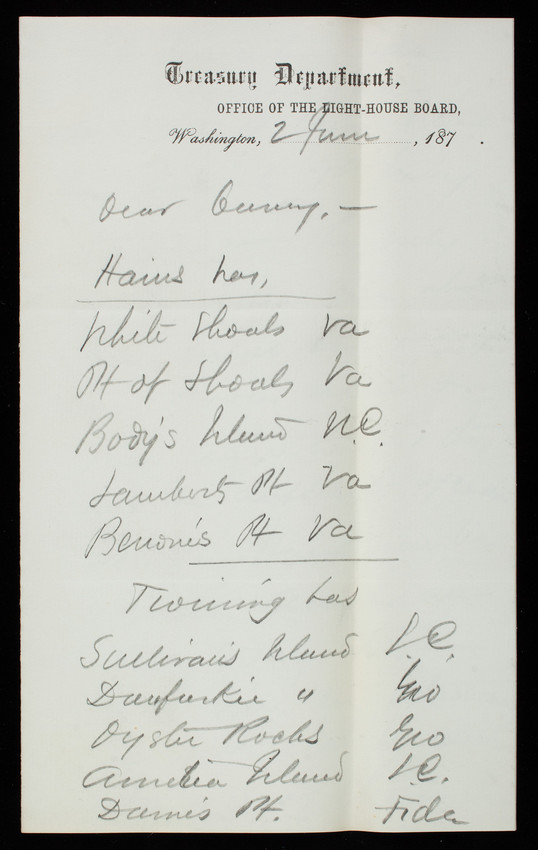 Treasury Department,
OFFICE OF THE LIGHT-HOUSE BOARD,
Washington, 2 June , 187 .
Dear Casey, —
Hains has,
White Shoals Va
Pt of Shoals Va
Body's Island N.C.
Lamberts Pt Va
Benonis Pt Va
Twining has
Sullivans Island S.C.
Daufuskie " Geo
Oyster Rocks Geo
Amelia Island S.C.
Dames Pt. Flda